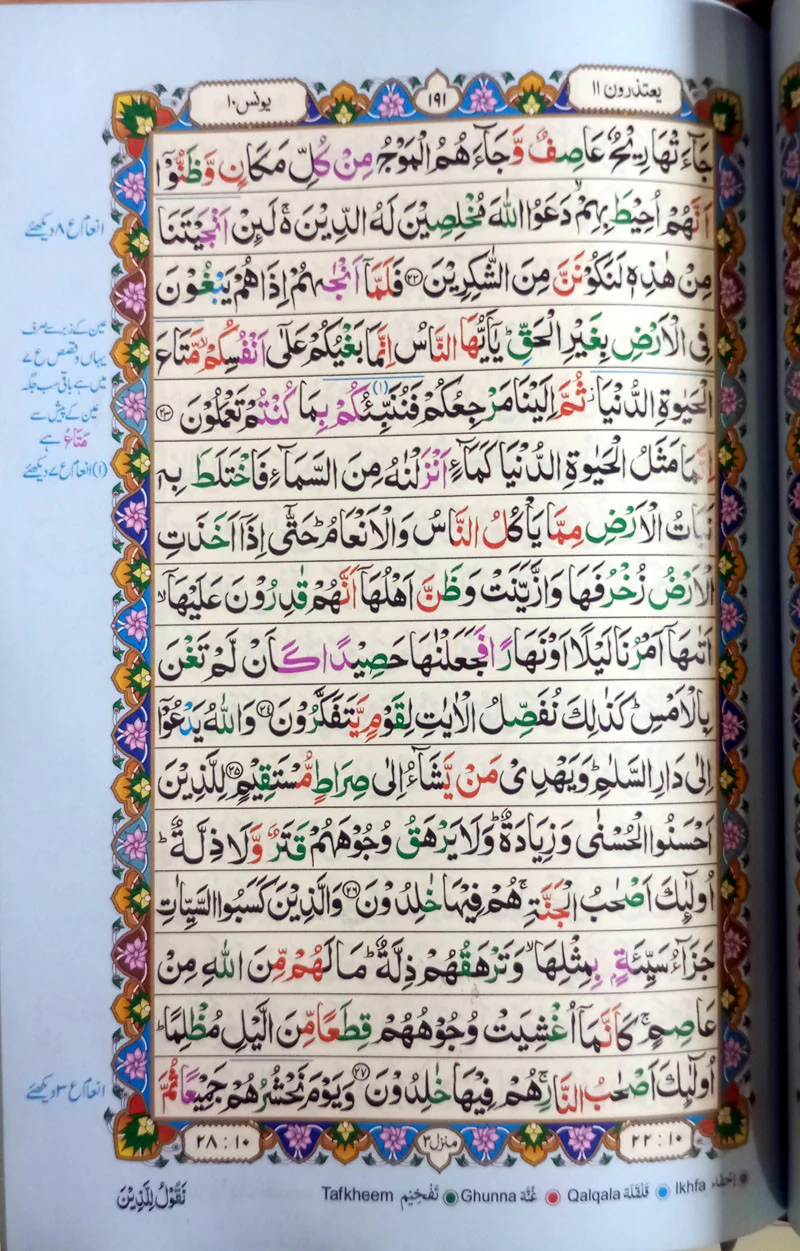 یعتذرون ۱۱
۱۹۱
یونس ۱۰
جَآءَتْهَا رِيْحٌ عَاصِفٌ وَّجَآءَهُمُ الْمَوْجُ مِنْ كُلِّ مَكَانٍ وَّظَنُّوْۤا
اَنَّهُمْ اُحِيْطَ بِهِمْ ۙ دَعَوُا اللّٰهَ مُخْلِصِيْنَ لَهُ الدِّيْنَ ۚ۬ لَئِنْ اَنْجَيْتَنَا
مِنْ هٰذِهٖ لَنَكُوْنَنَّ مِنَ الشّٰكِرِيْنَ ﴿۲۲﴾ فَلَمَّاۤ اَنْجٰىهُمْ اِذَا هُمْ يَبْغُوْنَ
فِى الْاَرْضِ بِغَيْرِ الْحَقِّ ؕ يٰۤاَيُّهَا النَّاسُ اِنَّمَا بَغْيُكُمْ عَلٰۤى اَنْفُسِكُمْ ۙ مَّتَاعَ
الْحَيٰوةِ الدُّنْيَا ؗ ثُمَّ اِلَيْنَا مَرْجِعُكُمْ فَنُنَبِّئُكُمْ (۱) بِمَا كُنْتُمْ تَعْمَلُوْنَ ﴿۲۳﴾
اِنَّمَا مَثَلُ الْحَيٰوةِ الدُّنْيَا كَمَآءٍ اَنْزَلْنٰهُ مِنَ السَّمَآءِ فَاخْتَلَطَ بِهٖ
نَبَاتُ الْاَرْضِ مِمَّا يَاْكُلُ النَّاسُ وَالْاَنْعَامُ ؕ حَتّٰۤى اِذَاۤ اَخَذَتِ
الْاَرْضُ زُخْرُفَهَا وَازَّيَّنَتْ وَظَنَّ اَهْلُهَاۤ اَنَّهُمْ قٰدِرُوْنَ عَلَيْهَاۤ ۙ
اَتٰىهَاۤ اَمْرُنَا لَيْلًا اَوْ نَهَارًا فَجَعَلْنٰهَا حَصِيْدًا كَاَنْ لَّمْ تَغْنَ
بِالْاَمْسِ ؕ كَذٰلِكَ نُفَصِّلُ الْاٰيٰتِ لِقَوْمٍ يَّتَفَكَّرُوْنَ ﴿۲۴﴾ وَاللّٰهُ يَدْعُوْۤا
اِلٰى دَارِ السَّلٰمِ ؕ وَيَهْدِىْ مَنْ يَّشَآءُ اِلٰى صِرَاطٍ مُّسْتَقِيْمٍ ﴿۲۵﴾ لِلَّذِيْنَ
اَحْسَنُوا الْحُسْنٰى وَزِيَادَةٌ ؕ وَلَا يَرْهَقُ وُجُوْهَهُمْ قَتَرٌ وَّلَا ذِلَّةٌ ؕ
اُولٰٓئِكَ اَصْحٰبُ الْجَنَّةِ ۚ هُمْ فِيْهَا خٰلِدُوْنَ ﴿۲۶﴾ وَالَّذِيْنَ كَسَبُوا السَّيِّاٰتِ
جَزَآءُ سَيِّئَةٍۭ بِمِثْلِهَا ۙ وَتَرْهَقُهُمْ ذِلَّةٌ ؕ مَا لَهُمْ مِّنَ اللّٰهِ مِنْ
عَاصِمٍ ۚ كَاَنَّمَاۤ اُغْشِيَتْ وُجُوْهُهُمْ قِطَعًا مِّنَ الَّيْلِ مُظْلِمًا ؕ
اُولٰٓئِكَ اَصْحٰبُ النَّارِ ۚ هُمْ فِيْهَا خٰلِدُوْنَ ﴿۲۷﴾ وَيَوْمَ نَحْشُرُهُمْ جَمِيْعًا ثُمَّ
انعام ع ۸ دیکھئے
عین کے زبر سے صرف
یہاں وقصص ع ۷
میں ہے باقی سب جگہ
عین کے پیش سے
مَتَاعُ ہے
(۱) انعام ع ۷ دیکھئے
انعام ع ۳ دیکھئے
۱۰ : ۲۲
منزل ۳
۱۰ : ۲۸
نَقُوْلُ لِلَّذِيْنَ
Tafkheem تَفْخِيْم Ghunna غُنَّة Qalqala قَلْقَلَة Ikhfa إخفاء